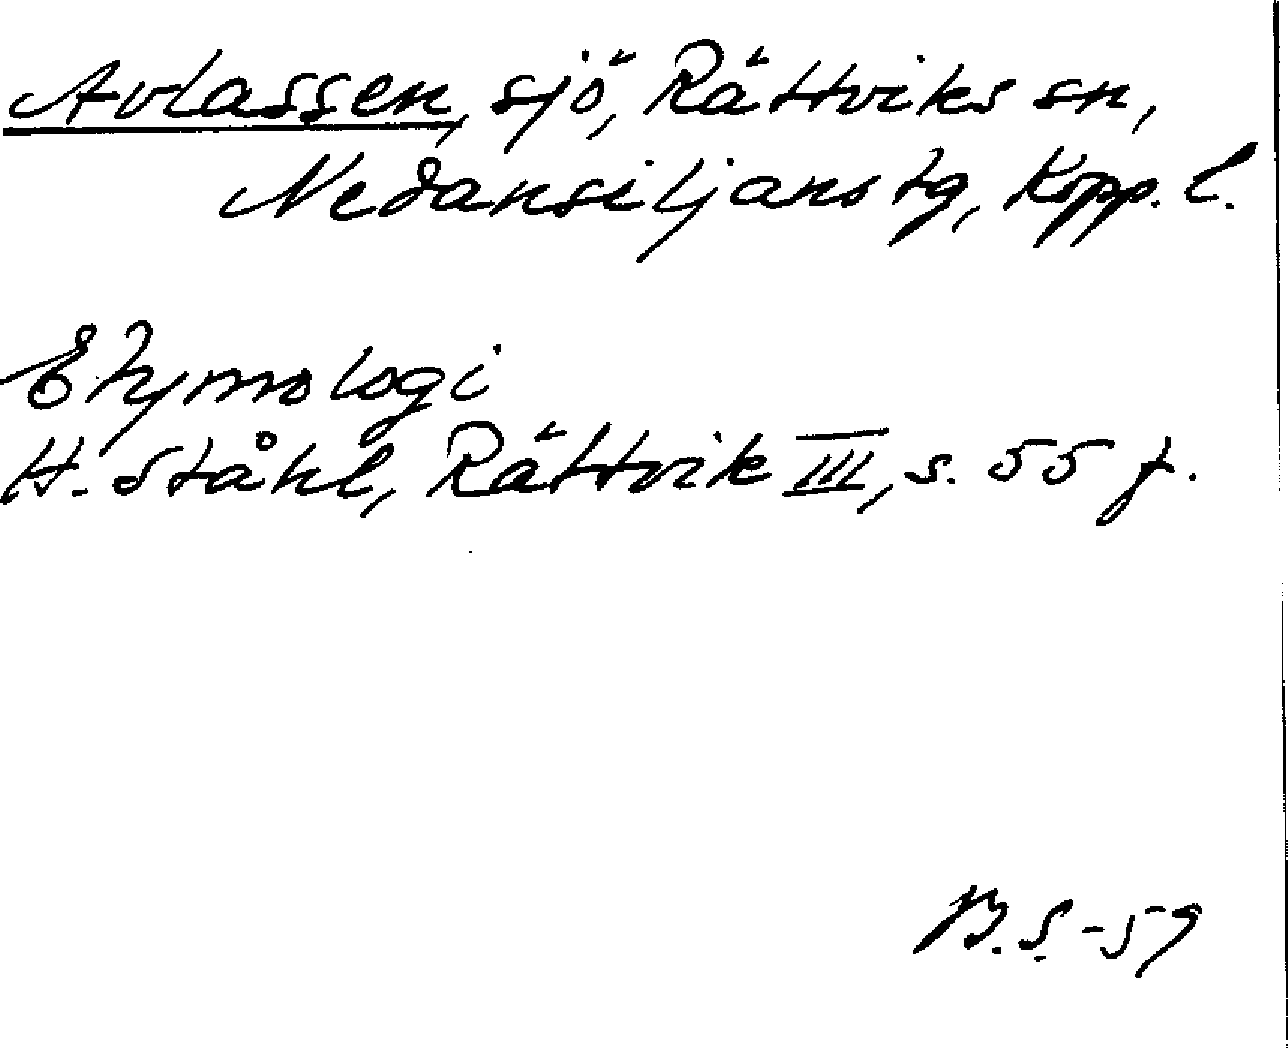 Avlassen, sjö, Rättviks sn,
Nedansiljans tg, Kopp. l.
Etymologi
H. Ståhl, Rättvik III, s. 55 f.
B. S. -59